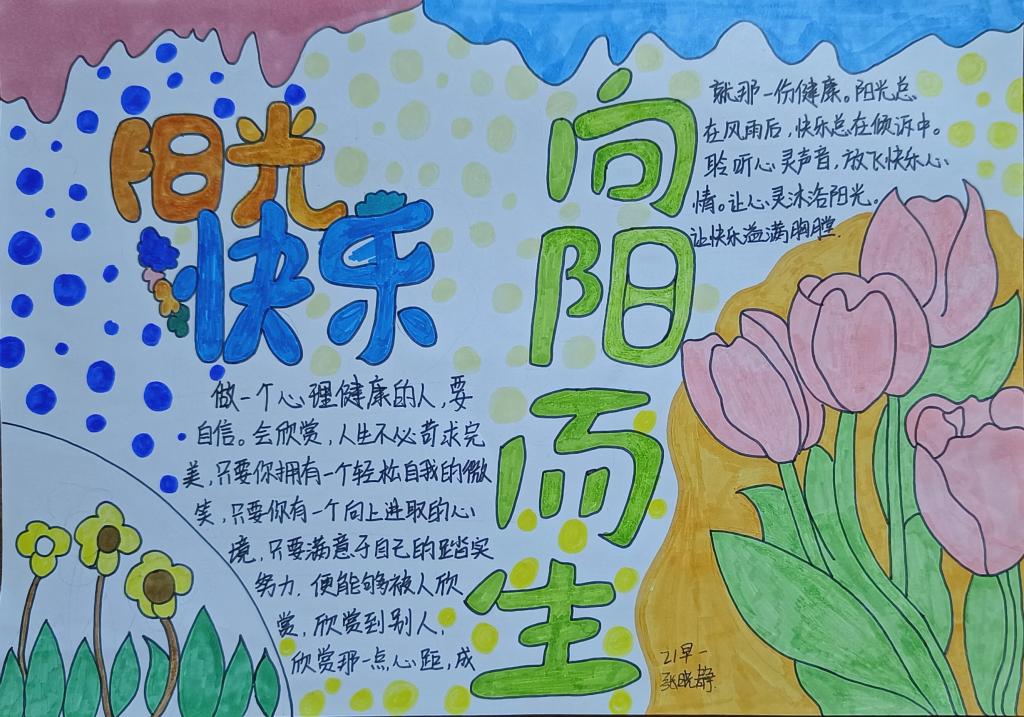 阳光
快乐
向阳而生
做一个心理健康的人,要
自信。会欣赏,人生不必苛求完
美,只要你拥有一个轻松自我的微
笑,只要你有一个向上进取的心
境,只要满意于自己的踏实
努力,便能够被人欣
赏,欣赏到别人,
欣赏那一点心距,成
就那一份健康。阳光总
在风雨后,快乐总在倾诉中。
聆听心灵声音,放飞快乐心
情。让心灵沐浴阳光。
让快乐溢满胸膛.
21早一
张晓静